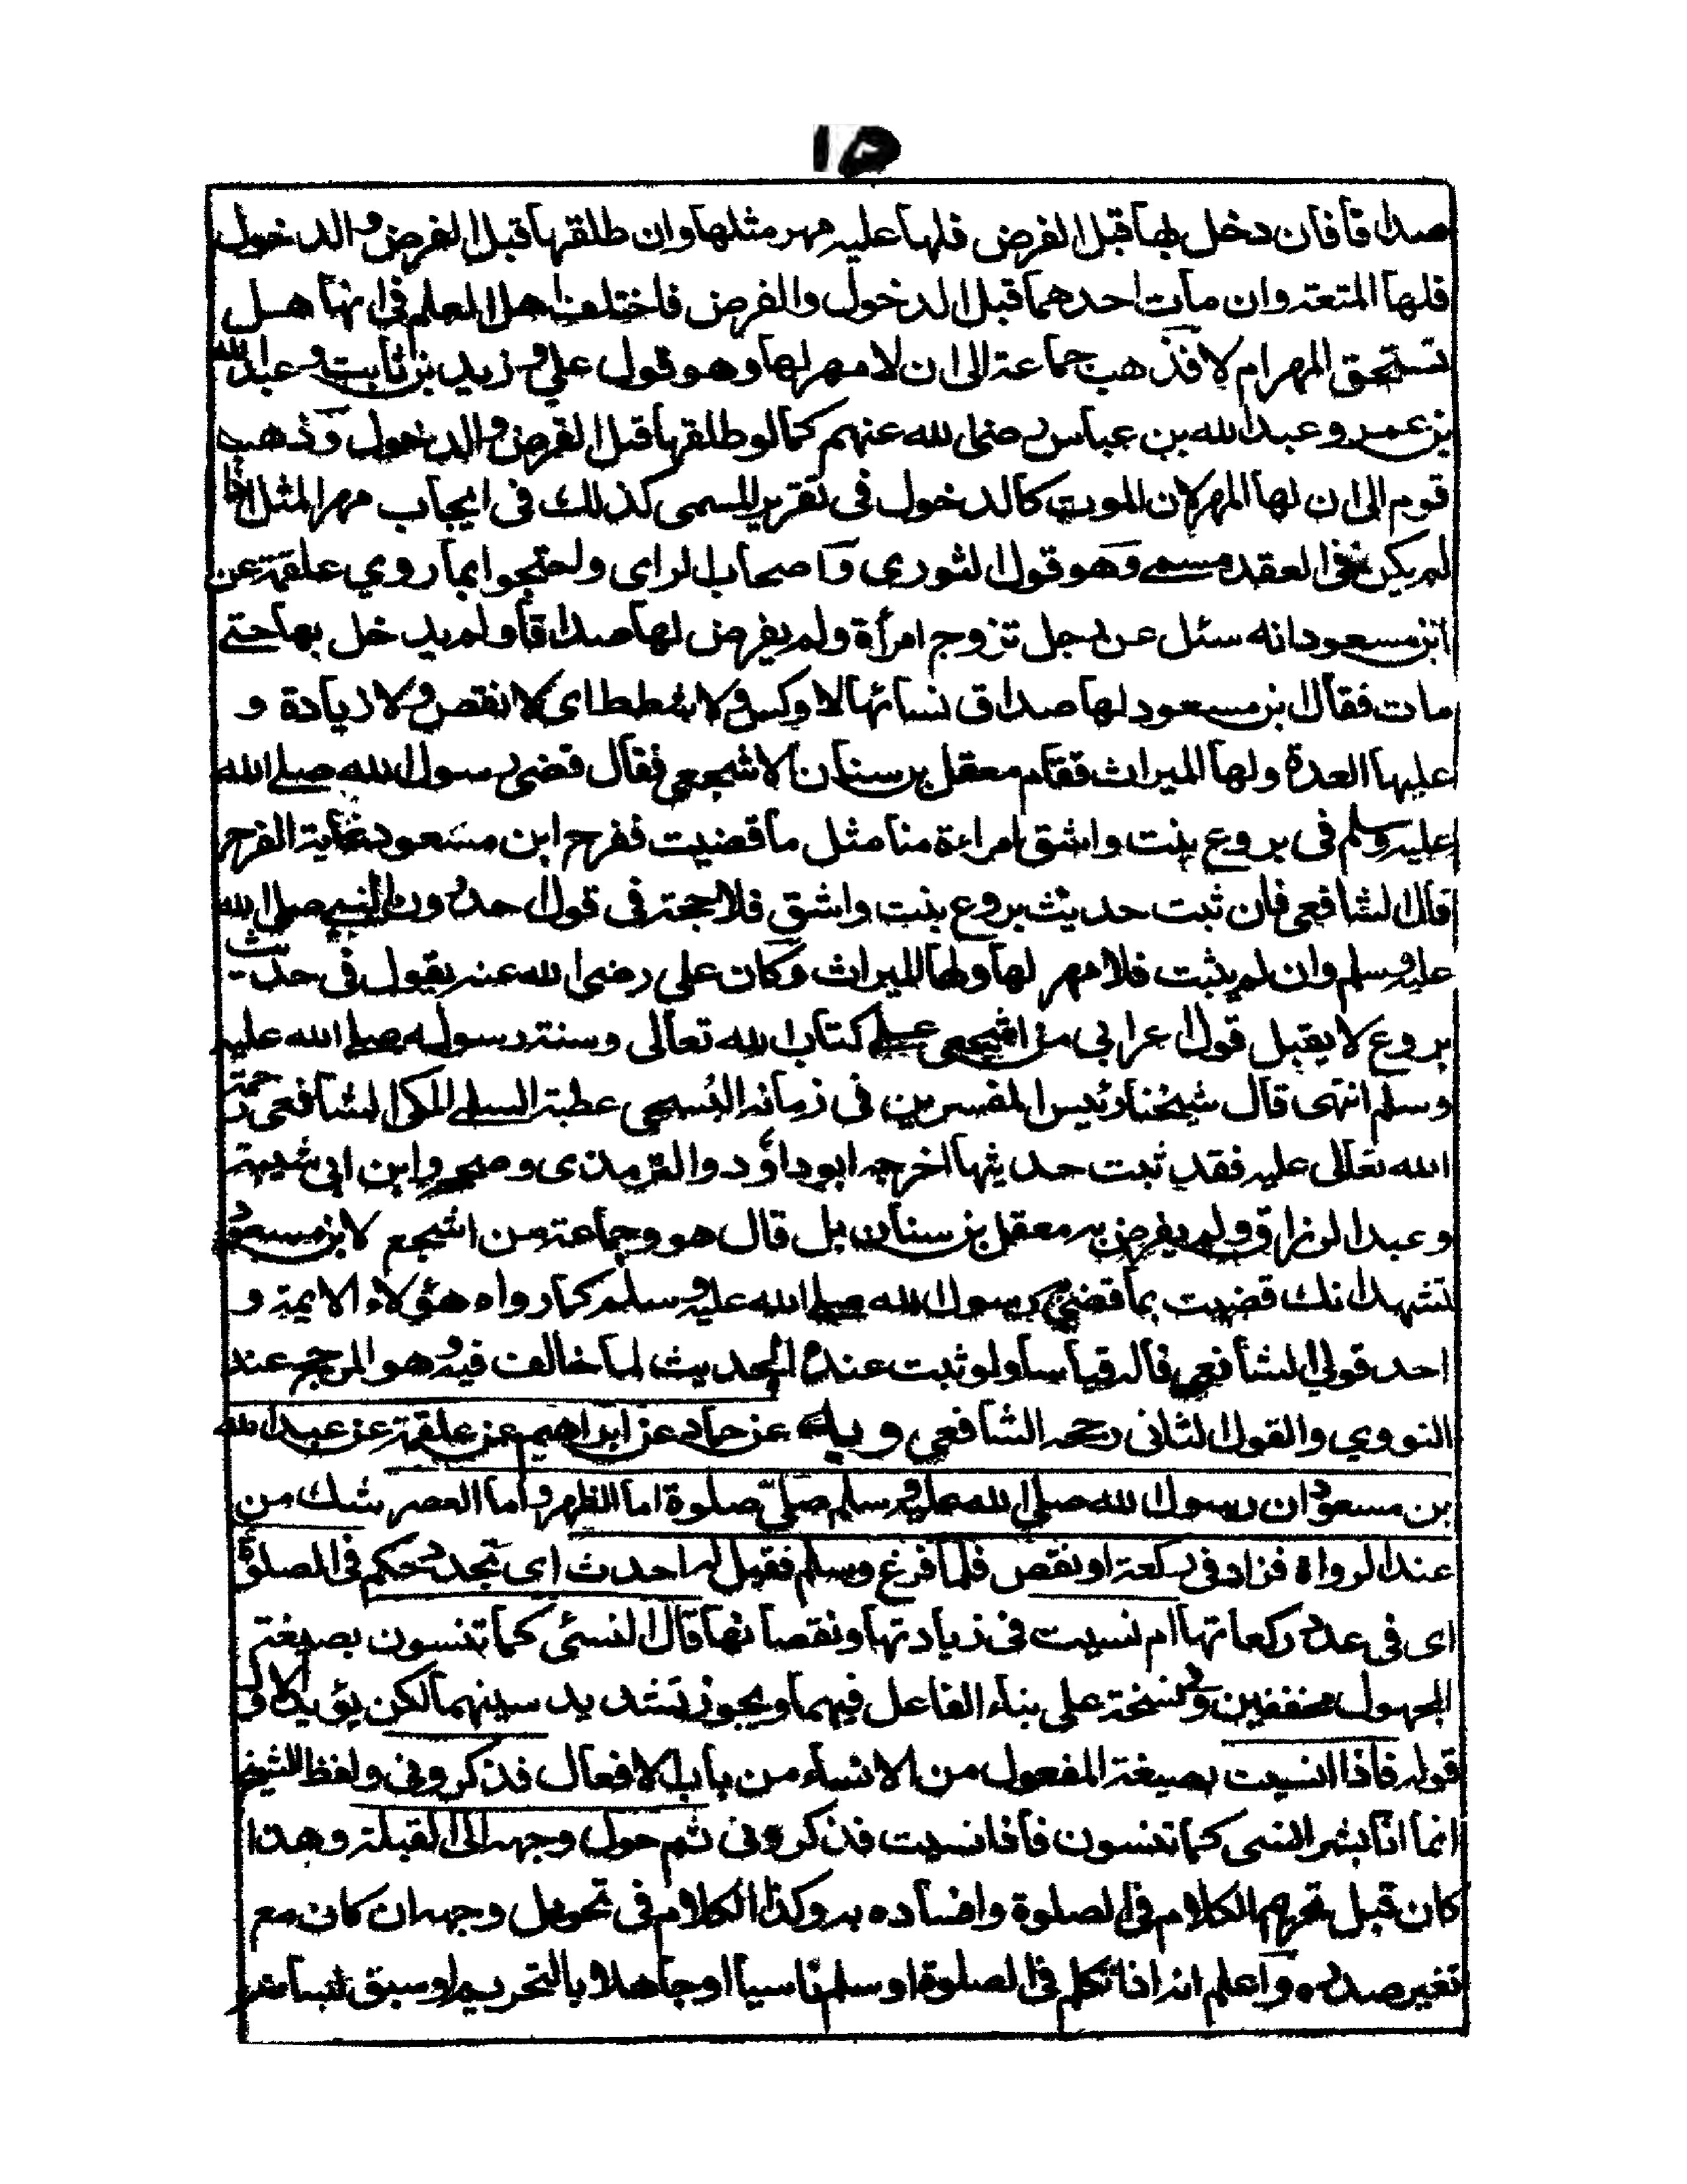 ١٥
صداقا فان دخل بها قبل الفرض فلها عليه مهر مثلها وان طلقها قبل الفرض والدخول
فلها المتعة وان مات احدهما قبل الدخول والفرض فاختلف اهل العلم فى انها هل
تستحق المهر ام لا فذهب جماعة الى ان لا مهر لها وهو قول على وزيد بن ثابت وعبد الله
بن عمر وعبد الله بن عباس رضى الله عنهم كما لو طلقها قبل الفرض والدخول وذهب
قوم الى ان لها المهر لان الموت كالدخول فى تقرير المسمى كذلك فى ايجاب مهر المثل اذا
لم يكن فى العقد مسمى وهو قول الثوري واصحاب الراى واحتجوا بما روي علقمة عن
ابن مسعود انه سئل عن رجل تزوج امرأة ولم يفرض لها صداقا ولم يدخل بها حتے
مات فقال ابن مسعود لها صداق نسائها لا وكس ولا شطط اى لا نقص ولا زيادة و
عليها العدة ولها الميراث فقام معقل بن سنان الاشجعى فقال قضى رسول الله صلے الله
عليه وسلم فى بروع بنت واشق امراءة منا مثل ما قضيت ففرح ابن مسعود غاية الفرح
قال الشافعى فان ثبت حديث بروع بنت واشق فلا حجة فى قول احد دون النبي صلى الله
عليه وسلم وان لم يثبت فلا مهر لها ولها الميراث وكان على رضى الله عنه يقول فى حديث
بروع لا يقبل قول اعرابي من اشجعى علے كتاب الله تعالى وسنة رسوله صلے الله عليه
وسلم انتهى قال شيخنا رئيس المفسرين فى زمانه المسمى عطية السلمے المكى الشافعى رحمة
الله تعالى عليه فقد ثبت حديثها اخرجه ابو داؤد والترمذى وصححه وابن ابى شيبة
وعبد الرزاق ولم يفرض به معقل بن سنان بل قال هو وجماعة من اشجع لابن مسعود
نشهد انك قضيت بما قضى رسول الله صلے الله عليه وسلم كما رواه هؤلاء الايمة و
احد قولي الشافعي قاله قياسا ولو ثبت عنده الحديث لما خالف فيه وهو المرجح عند
النووي والقول الثانى رجحه الشافعي وبه عن حماد عن ابراهيم عن علقمة عن عبد الله
بن مسعود ان رسول الله صلى الله عليه وسلم صلى صلوة اما الظهر واما العصر شك من
عند الرواة فزاد فى ركعة او نقص فلما فرغ وسلم فقيل له احدث اى تجدد حكم فى الصلوة
اى فى عدد ركعاتها ام نسيت فى زيادتها ونقصانها قال انسئ كما تنسون بصيغة
المجهول مخففين وفى نسخة على بناء الفاعل فيهما ويجوز تشديد سينهما لكن يؤيد الاول
قوله فاذا انسيت بصيغة المفعول من الانساء من باب الافعال فذكروني ولفظ الشيخ
انما انا بشر انسى كما تنسون فاذا نسيت فذكروني ثم حول وجهه الى القبلة وهذا
كان قبل تحريم الكلام فى الصلوة وافساده به وكذا الكلام فى تحويل وجهه ان كان مع
تغير صدره واعلم انه اذا تكلم فى الصلوة او سلم ناسيا او جاهلا بالتحريم او سبق لسانه